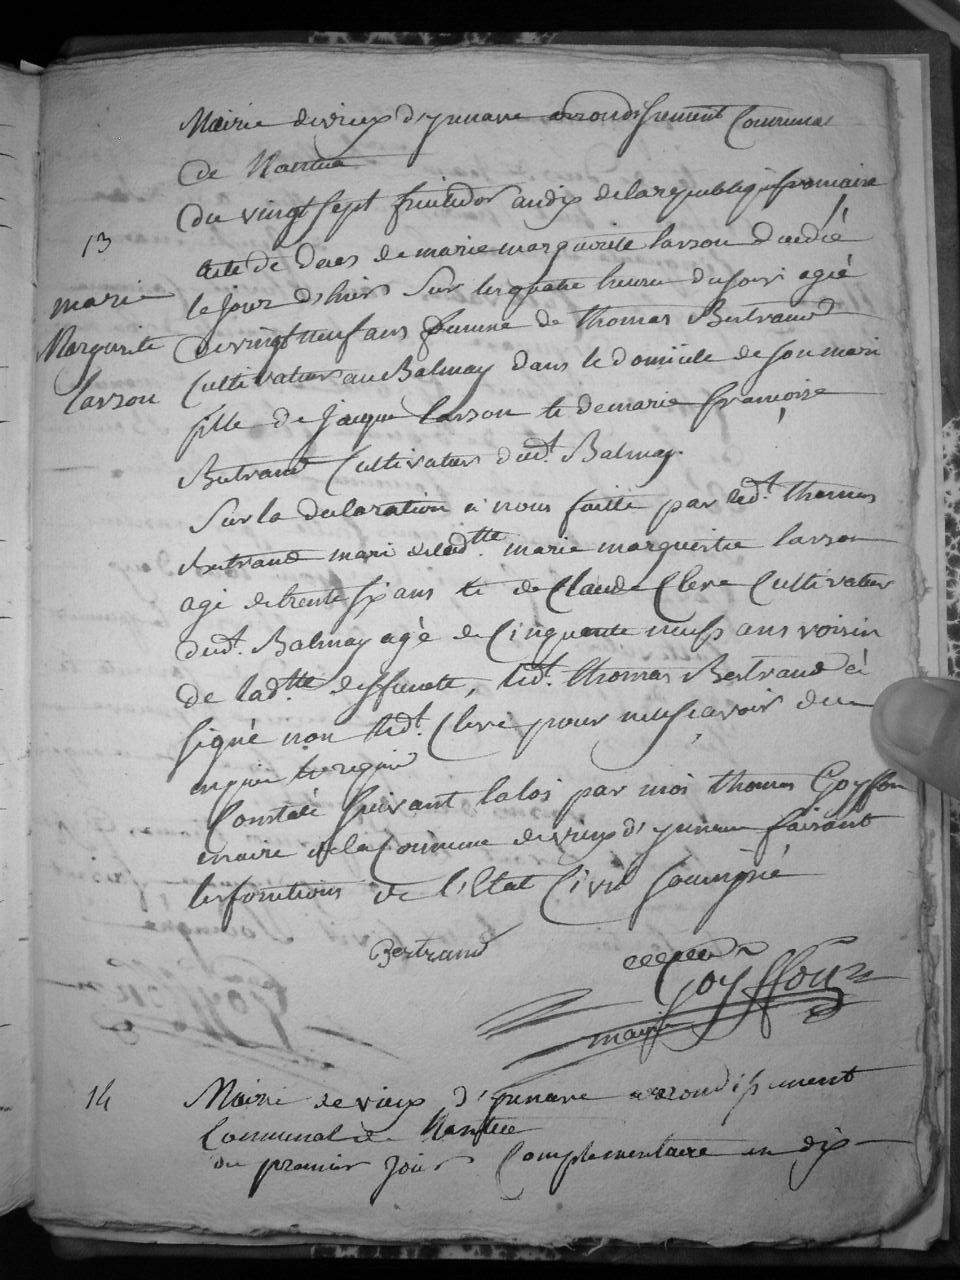 Mairie devieux d'yzenave arrondissement Communal
de Nantua
du vingt sept fructidor an dix de la republique francaise
13
acte de deces de marie marguerite larson decedée
marie
Marguerite
larson
le jour d'hier sur les quatre heure du soir agée
de vingt neuf ans femme de thomas Bertrand
Cultivateur au Balmay dans le domicile de son mari
fille de jacque larson et de marie francoise
Bertrand Cultivateurs dud.t Balmay.
Sur la declaration a nous faitte par led.t thomas
Bertrand mari de lad.tte marie marguerite larson
agé de trente six ans et de Claude Clere Cultivateur
dud.t Balmay agé de Cinquante neuf ans voisin
de lad.tte deffunte, led.t thomas Bertrand a
signé non led.t Clere pour ne scavoir de ce
enquis et requis
Constaté suivant la loi par moi thomas Goyffon
maire de la Commune de vieux d'yzenave faisant
les fonctions de l'Etat Civil soussigné
Bertrand
Goyffon
maire
14
Mairie de vieux d'yzenave arrondissement
Communal de Nantua
du premier jour Complementaire an dix